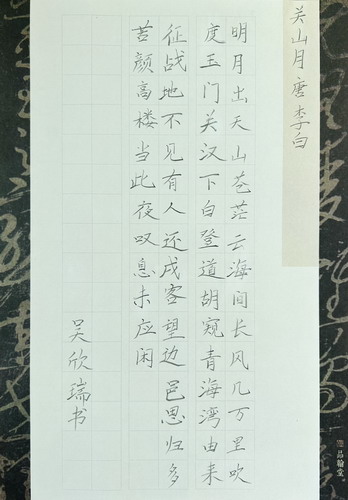 关山月 唐 李白
明月出天山苍茫云海间长风几万里吹
度玉门关汉下白登道胡窥青海湾由来
征战地不见有人还戍客望边邑思归多
苦颜高楼当此夜叹息未应闲
吴欣瑞书
品翰堂